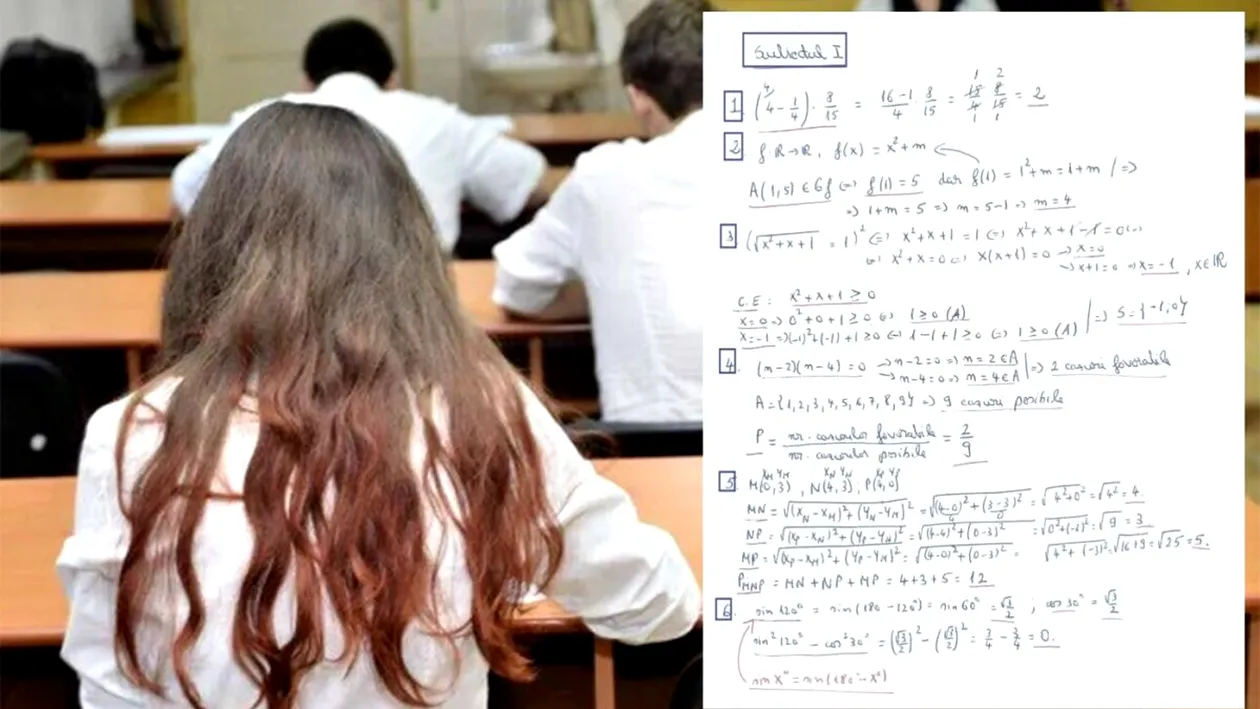 Subiectul I
1. (4 - 1/4) · 8/15 = 16-1/4 · 8/15 = 15/4 · 8/15 = 2
2. f R→R, f(x) = x²+m
A(1,5) ∈ Gf ⇔ f(1) = 5 dar f(1) = 1²+m = 1+m | ⇒
⇒ 1+m = 5 ⇒ m = 5-1 ⇒ m = 4
3 (√x²+x+1 = 1)² ⇔ x²+x+1 = 1 ⇔ x²+x+1-1 = 0 ⇔
⇔ x²+x = 0 ⇔ x(x+1) = 0 → x=0
→ x+1=0 ⇒ x=-1, x∈R
C.E: x²+x+1 ≥ 0
x=0 ⇒ 0²+0+1 ≥ 0 ⇔ 1 ≥ 0 (A)
x=-1 ⇒ (-1)²+(-1)+1 ≥ 0 ⇔ 1-1+1 ≥ 0 ⇔ 1 ≥ 0 (A) | ⇒ S = {-1,0}
4. (n-2)(n-4) = 0 → n-2=0 ⇒ n=2∈A
→ n-4=0 ⇒ n=4∈A | ⇒ 2 cazuri favorabile
A = {1,2,3,4,5,6,7,8,9} ⇒ 9 cazuri posibile
P = nr. cazurilor favorabile / nr. cazurilor posibile = 2/9
5 M(0,3), N(4,3); P(4,0)
MN = √(xN-xM)²+(yN-yM)² = √(4-0)²+(3-3)² = √4²+0² = √4² = 4.
NP = √(xP-xN)²+(yP-yN)² = √(4-4)²+(0-3)² = √0²+(-3)² = √9 = 3
MP = √(xP-xM)²+(yP-yM)² = √(4-0)²+(0-3)² = √4²+(-3)² = √16+9 = √25 = 5.
PMNP = MN+NP+MP = 4+3+5 = 12
6. sin120° = sin(180-120°) = sin60° = √3/2; cos30° = √3/2
sin²120° - cos²30° = (√3/2)² - (√3/2)² = 3/4 - 3/4 = 0.
sin x° = sin(180°-x°)